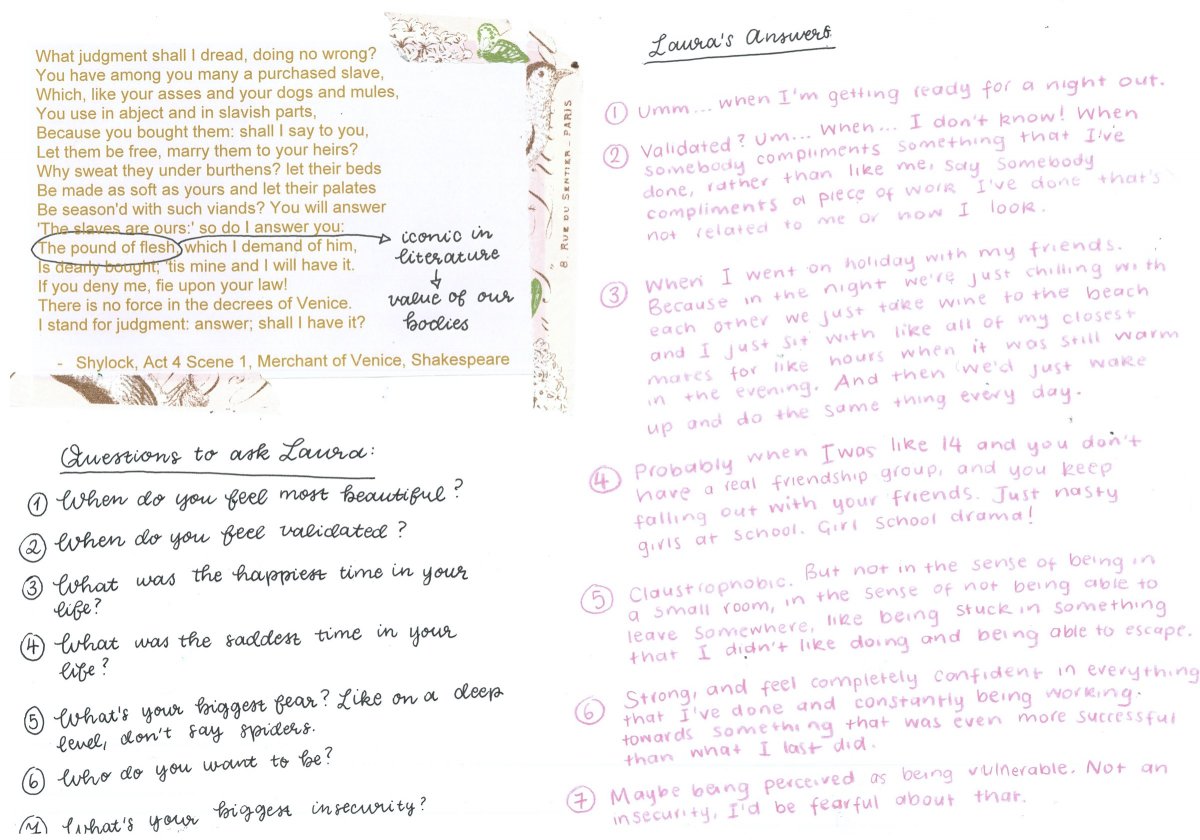 What judgment shall I dread, doing no wrong?
You have among you many a purchased slave,
Which, like your asses and your dogs and mules,
You use in abject and in slavish parts,
Because you bought them: shall I say to you,
Let them be free, marry them to your heirs?
Why sweat they under burthens? let their beds
Be made as soft as yours and let their palates
Be season'd with such viands? You will answer
'The slaves are ours:' so do I answer you:
The pound of flesh, which I demand of him,
Is dearly bought; 'tis mine and I will have it.
If you deny me, fie upon your law!
There is no force in the decrees of Venice.
I stand for judgment: answer; shall I have it?
- Shylock, Act 4 Scene 1, Merchant of Venice, Shakespeare
iconic in
literature
value of our
bodies
8, RUE DU SENTIER_PARIS
Questions to ask Laura:
① When do you feel most beautiful?
② When do you feel validated?
③ What was the happiest time in your
life?
④ What was the saddest time in your
life?
⑤ What's your biggest fear? Like on a deep
level, don't say spiders.
⑥ Who do you want to be?
⑦ What's your biggest insecurity?
Laura's Answers
① Umm... when I'm getting ready for a night out.
② Validated? Um... when... I don't know! When
somebody compliments something that I've
done, rather than like me, say somebody
compliments a piece of work I've done that's
not related to me or how I look.
③ When I went on holiday with my friends.
Because in the night we're just chilling with
each other we just take wine to the beach
and I just sit with like all of my closest
mates for like hours when it was still warm
in the evening. And then we'd just wake
up and do the same thing every day.
④ Probably when I was like 14 and you don't
have a real friendship group, and you keep
falling out with your friends. Just nasty
girls at school. Girl School drama!
⑤ Claustrophobic. But not in the sense of being in
a small room, in the sense of not being able to
leave somewhere, like being stuck in something
that I didn't like doing and being able to escape.
⑥ Strong, and feel completely confident in everything
that I've done and constantly being working
towards something that was even more successful
than what I last did.
⑦ Maybe being perceived as being vulnerable. Not an
insecurity, I'd be fearful about that.